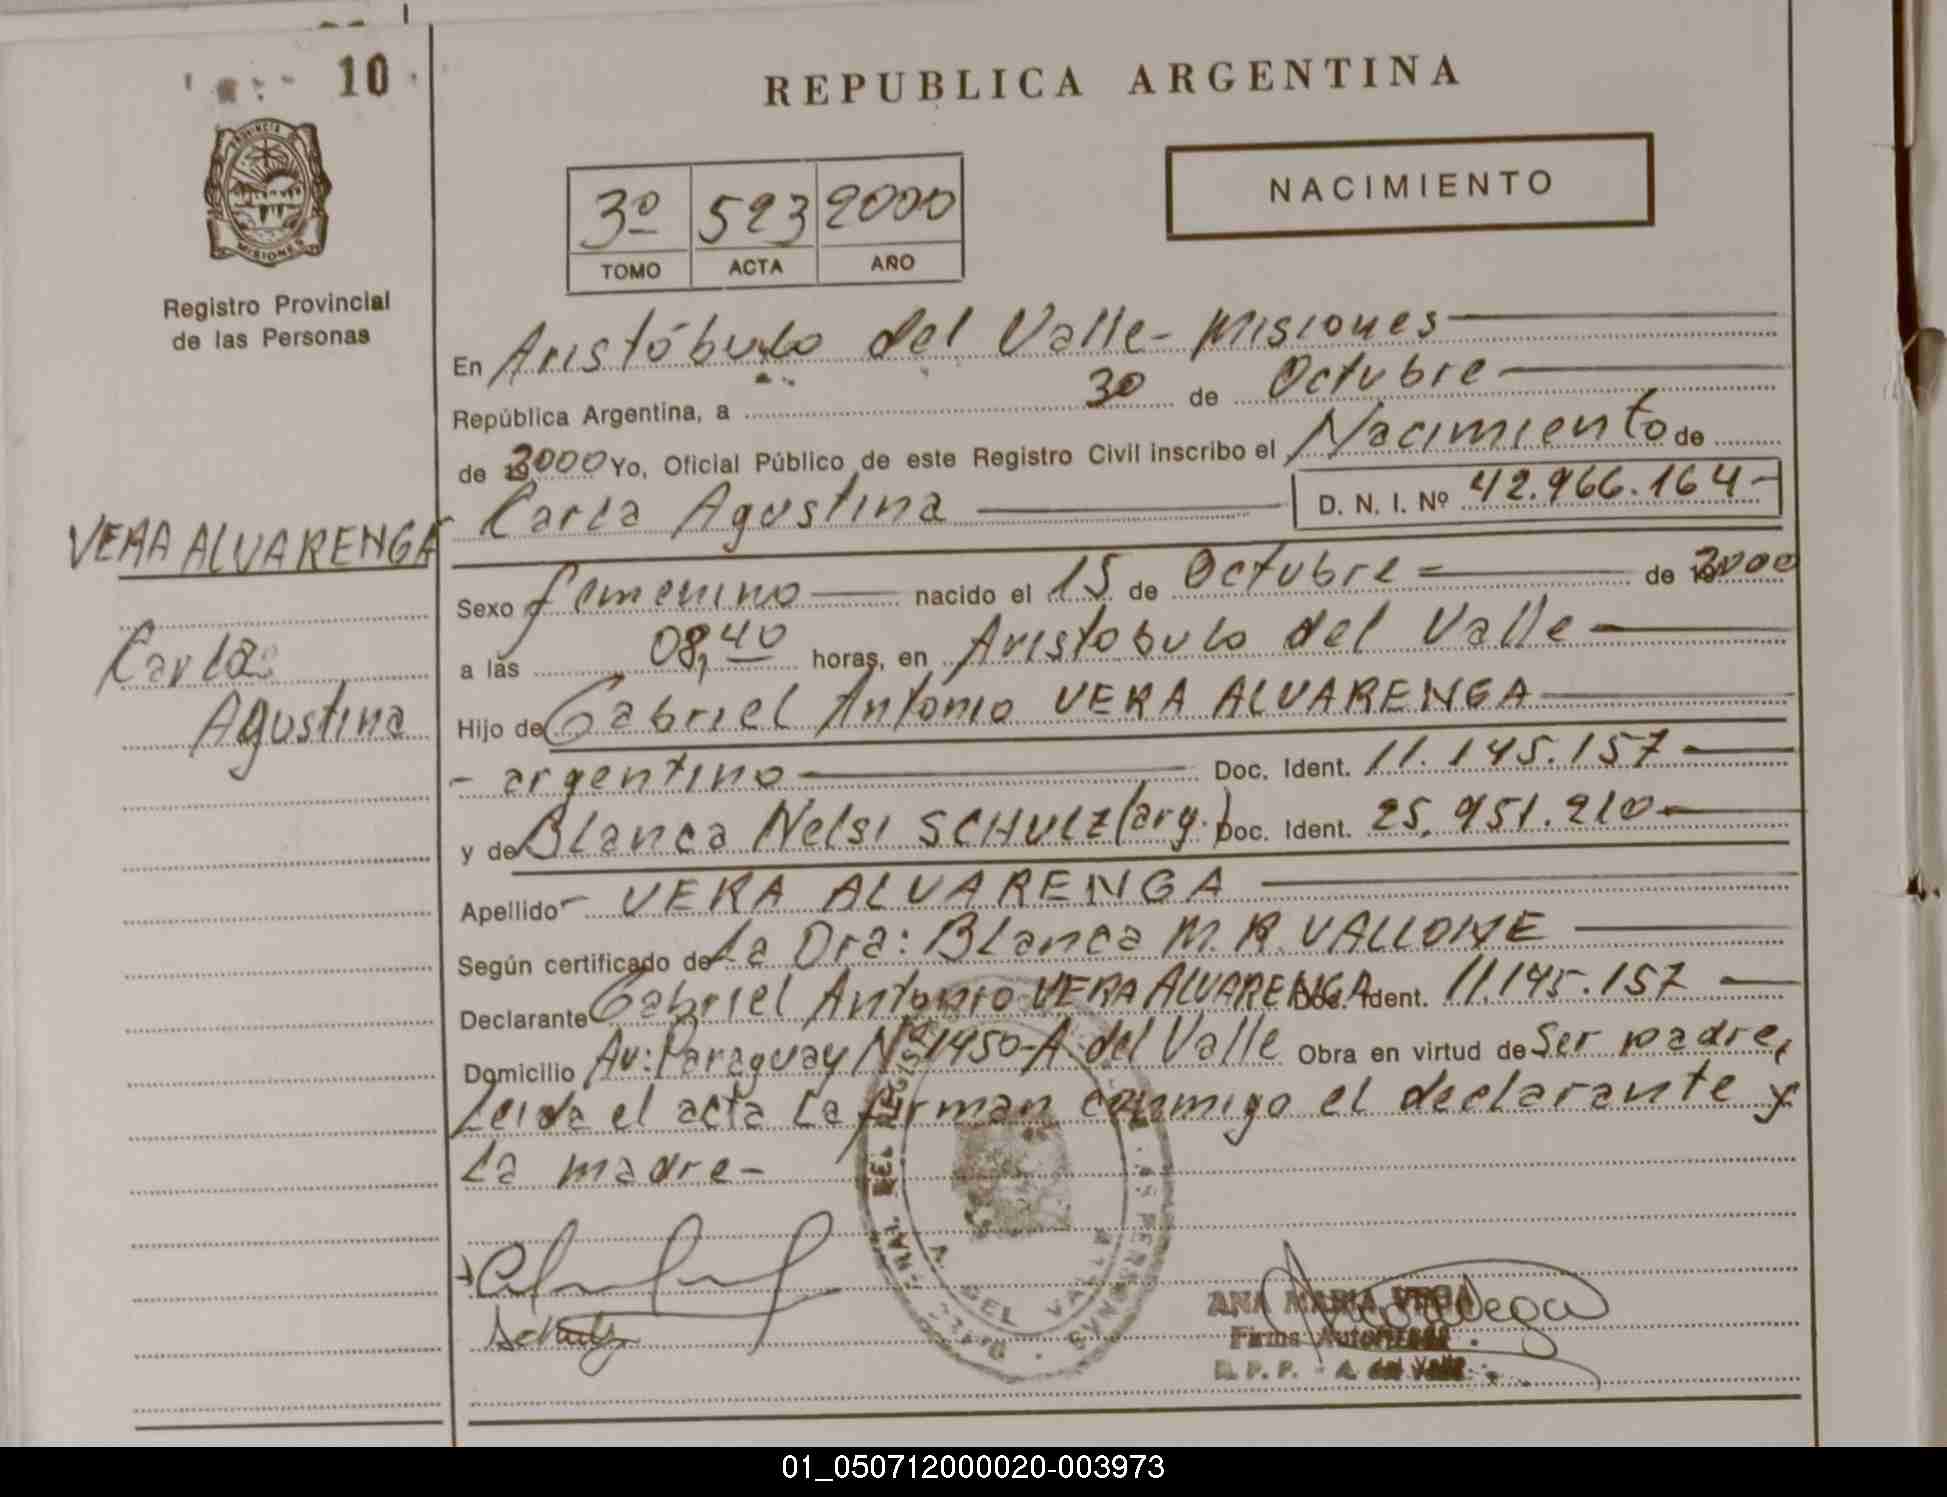 10
REPUBLICA ARGENTINA
PROVINCIA
MISIONES
Registro Provincial
de las Personas
3º 523 2000
TOMO ACTA AÑO
NACIMIENTO
En Aristóbulo del Valle - Misiones
República Argentina, a 30 de Octubre
de 2000 Yo, Oficial Público de este Registro Civil inscribo el Nacimiento de
Carla Agustina D. N. I. Nº 42.966.164-
VERA ALVARENGA
Carla
Agustina
Sexo femenino nacido el 15 de Octubre = de 2000
a las 08,40 horas, en Aristobulo del Valle
Hijo de Gabriel Antonio VERA ALVARENGA
- argentino Doc. Ident. 11.145.157-
y de Blanca Nelsi SCHULZ (arg.) Doc. Ident. 25.951.210-
Apellido - VERA ALVARENGA
Según certificado de La Dra: Blanca M. R. VALLONE
Declarante Gabriel Antonio VERA ALVARENGA Doc. Ident. 11145.157
Domicilio Av: Paraguay Nº 1450-A. del Valle Obra en virtud de Ser padre,
Leida el acta la firman conmigo el declarante y
la madre-
Schulz
DEL VALLE
ANA MARIA VEGA
Firma Autorizada
R. P. P. - A. del Valle
01_050712000020-003973